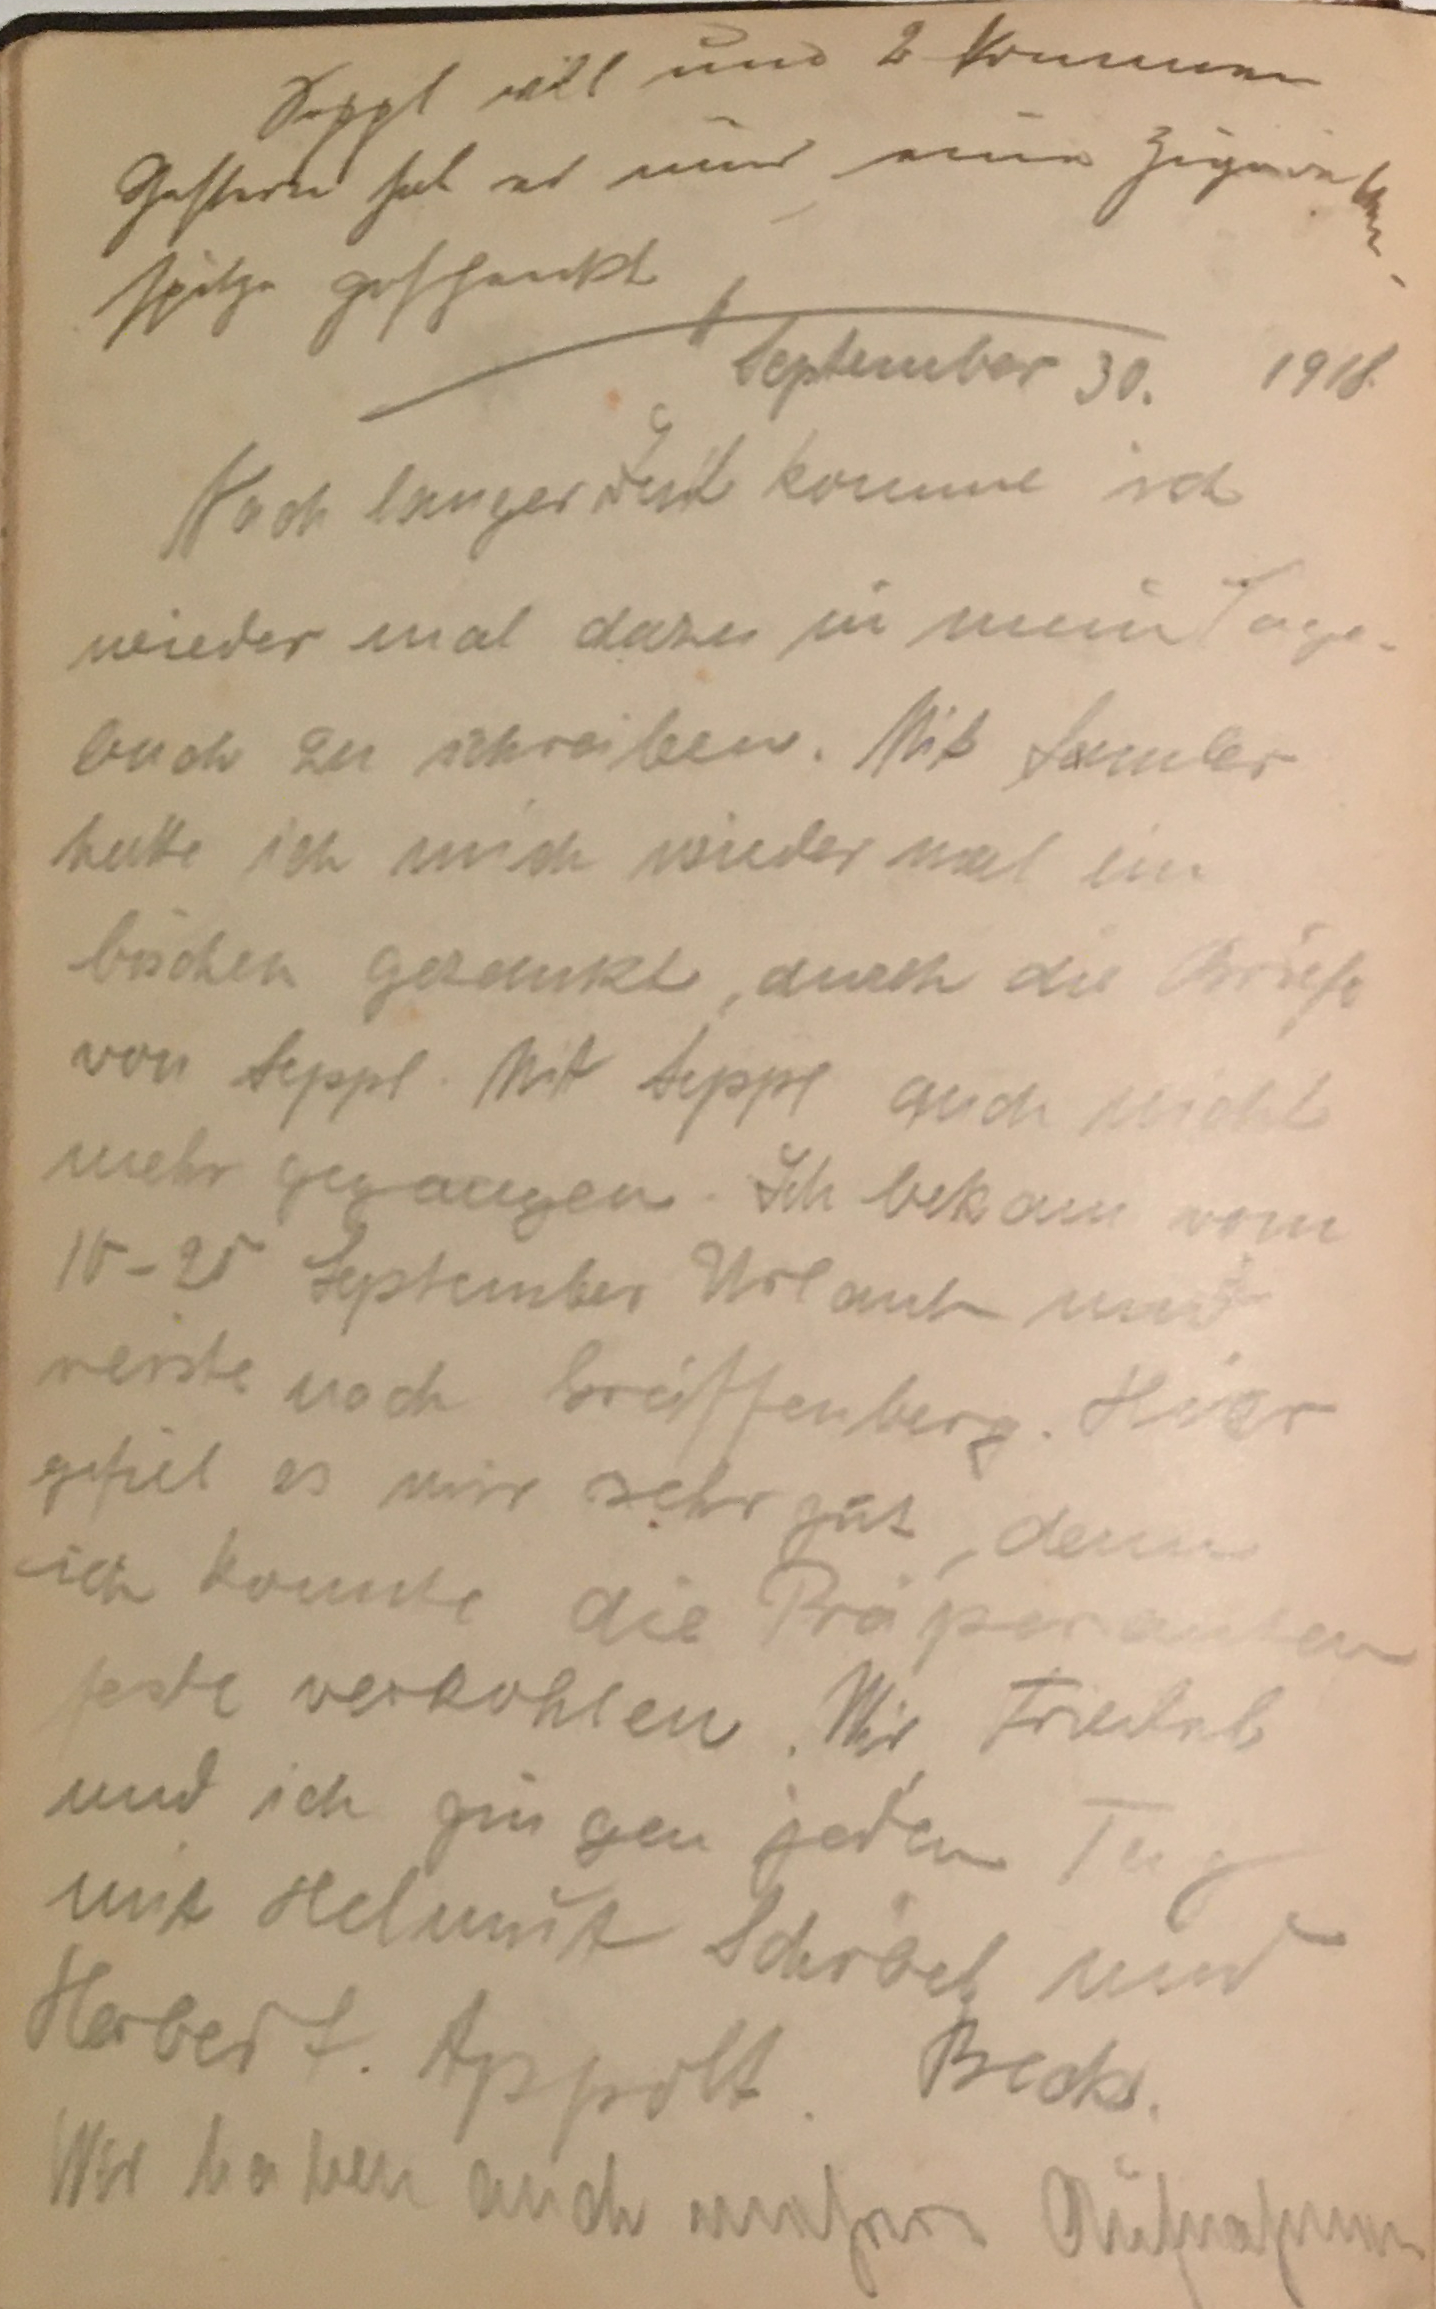 Seppl will und 2 kommen
Gestern hat er mir eine Zigaretten-
spitze geschenkt
September 30. 1918.
Nach langer Zeit komme ich
wieder mal dazu in mein Tage-
buch zu schreiben. Mit
hatte ich mich wieder mal ein
bischen gezankt, durch die Briefe
von Seppl. Mit Seppl auch nicht
mehr gegangen. Ich bekam vom
15-25 September Urlaub und
reiste nach Greiffenberg. Hier
gefiel es mir sehr gut, denn
ich konnte die Präparanden
feste verkohlen. Wir, Friedel
und ich gingen jeden Tag
mit Helmut und
Herbert. Appolt. Beck.
Wir haben auch mehrere Aufnahmen